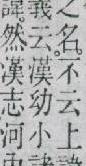 之名。不云上
義云漢幼小
諱。然漢志河